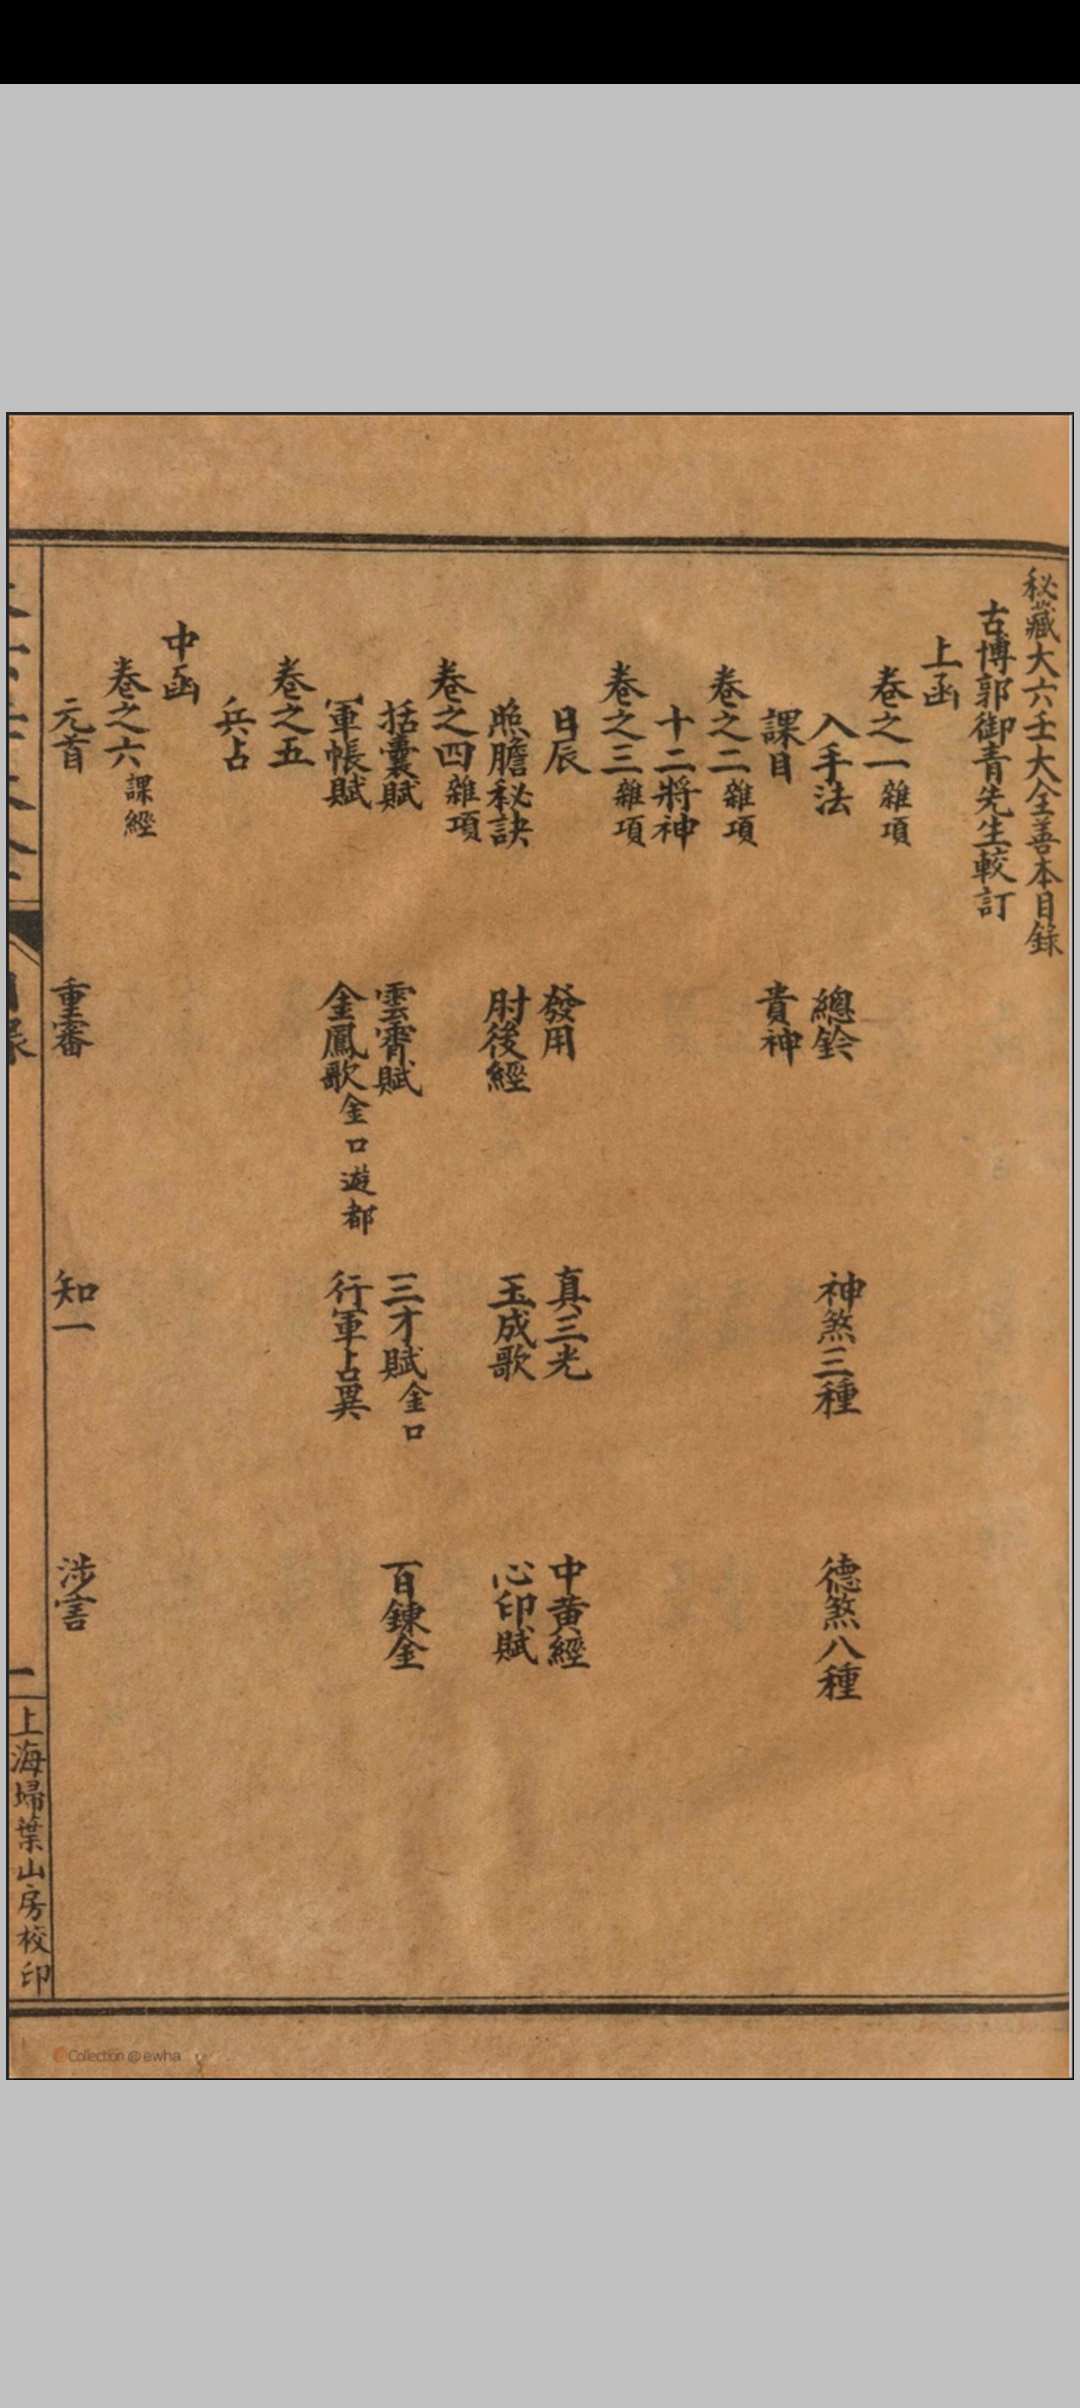 秘藏大六壬大全善本目錄
古博郭御青先生較訂
上函
卷之一 雜項
入手法 總鈐 神煞三種 德煞八種
課目 貴神
卷之二 雜項
十二將神
卷之三 雜項
日辰 發用 真三光 中黃經
照膽秘訣 肘後經 玉成歌 心印賦
卷之四 雜項
括囊賦 雲霄賦 三才賦 金口 百鍊金
軍帳賦 金鳳歌 金口遊都 行軍占異
卷之五
兵占
中函
卷之六 課經
元首 重審 知一 涉害
一 上海埽葉山房校印
Collection @ ewha